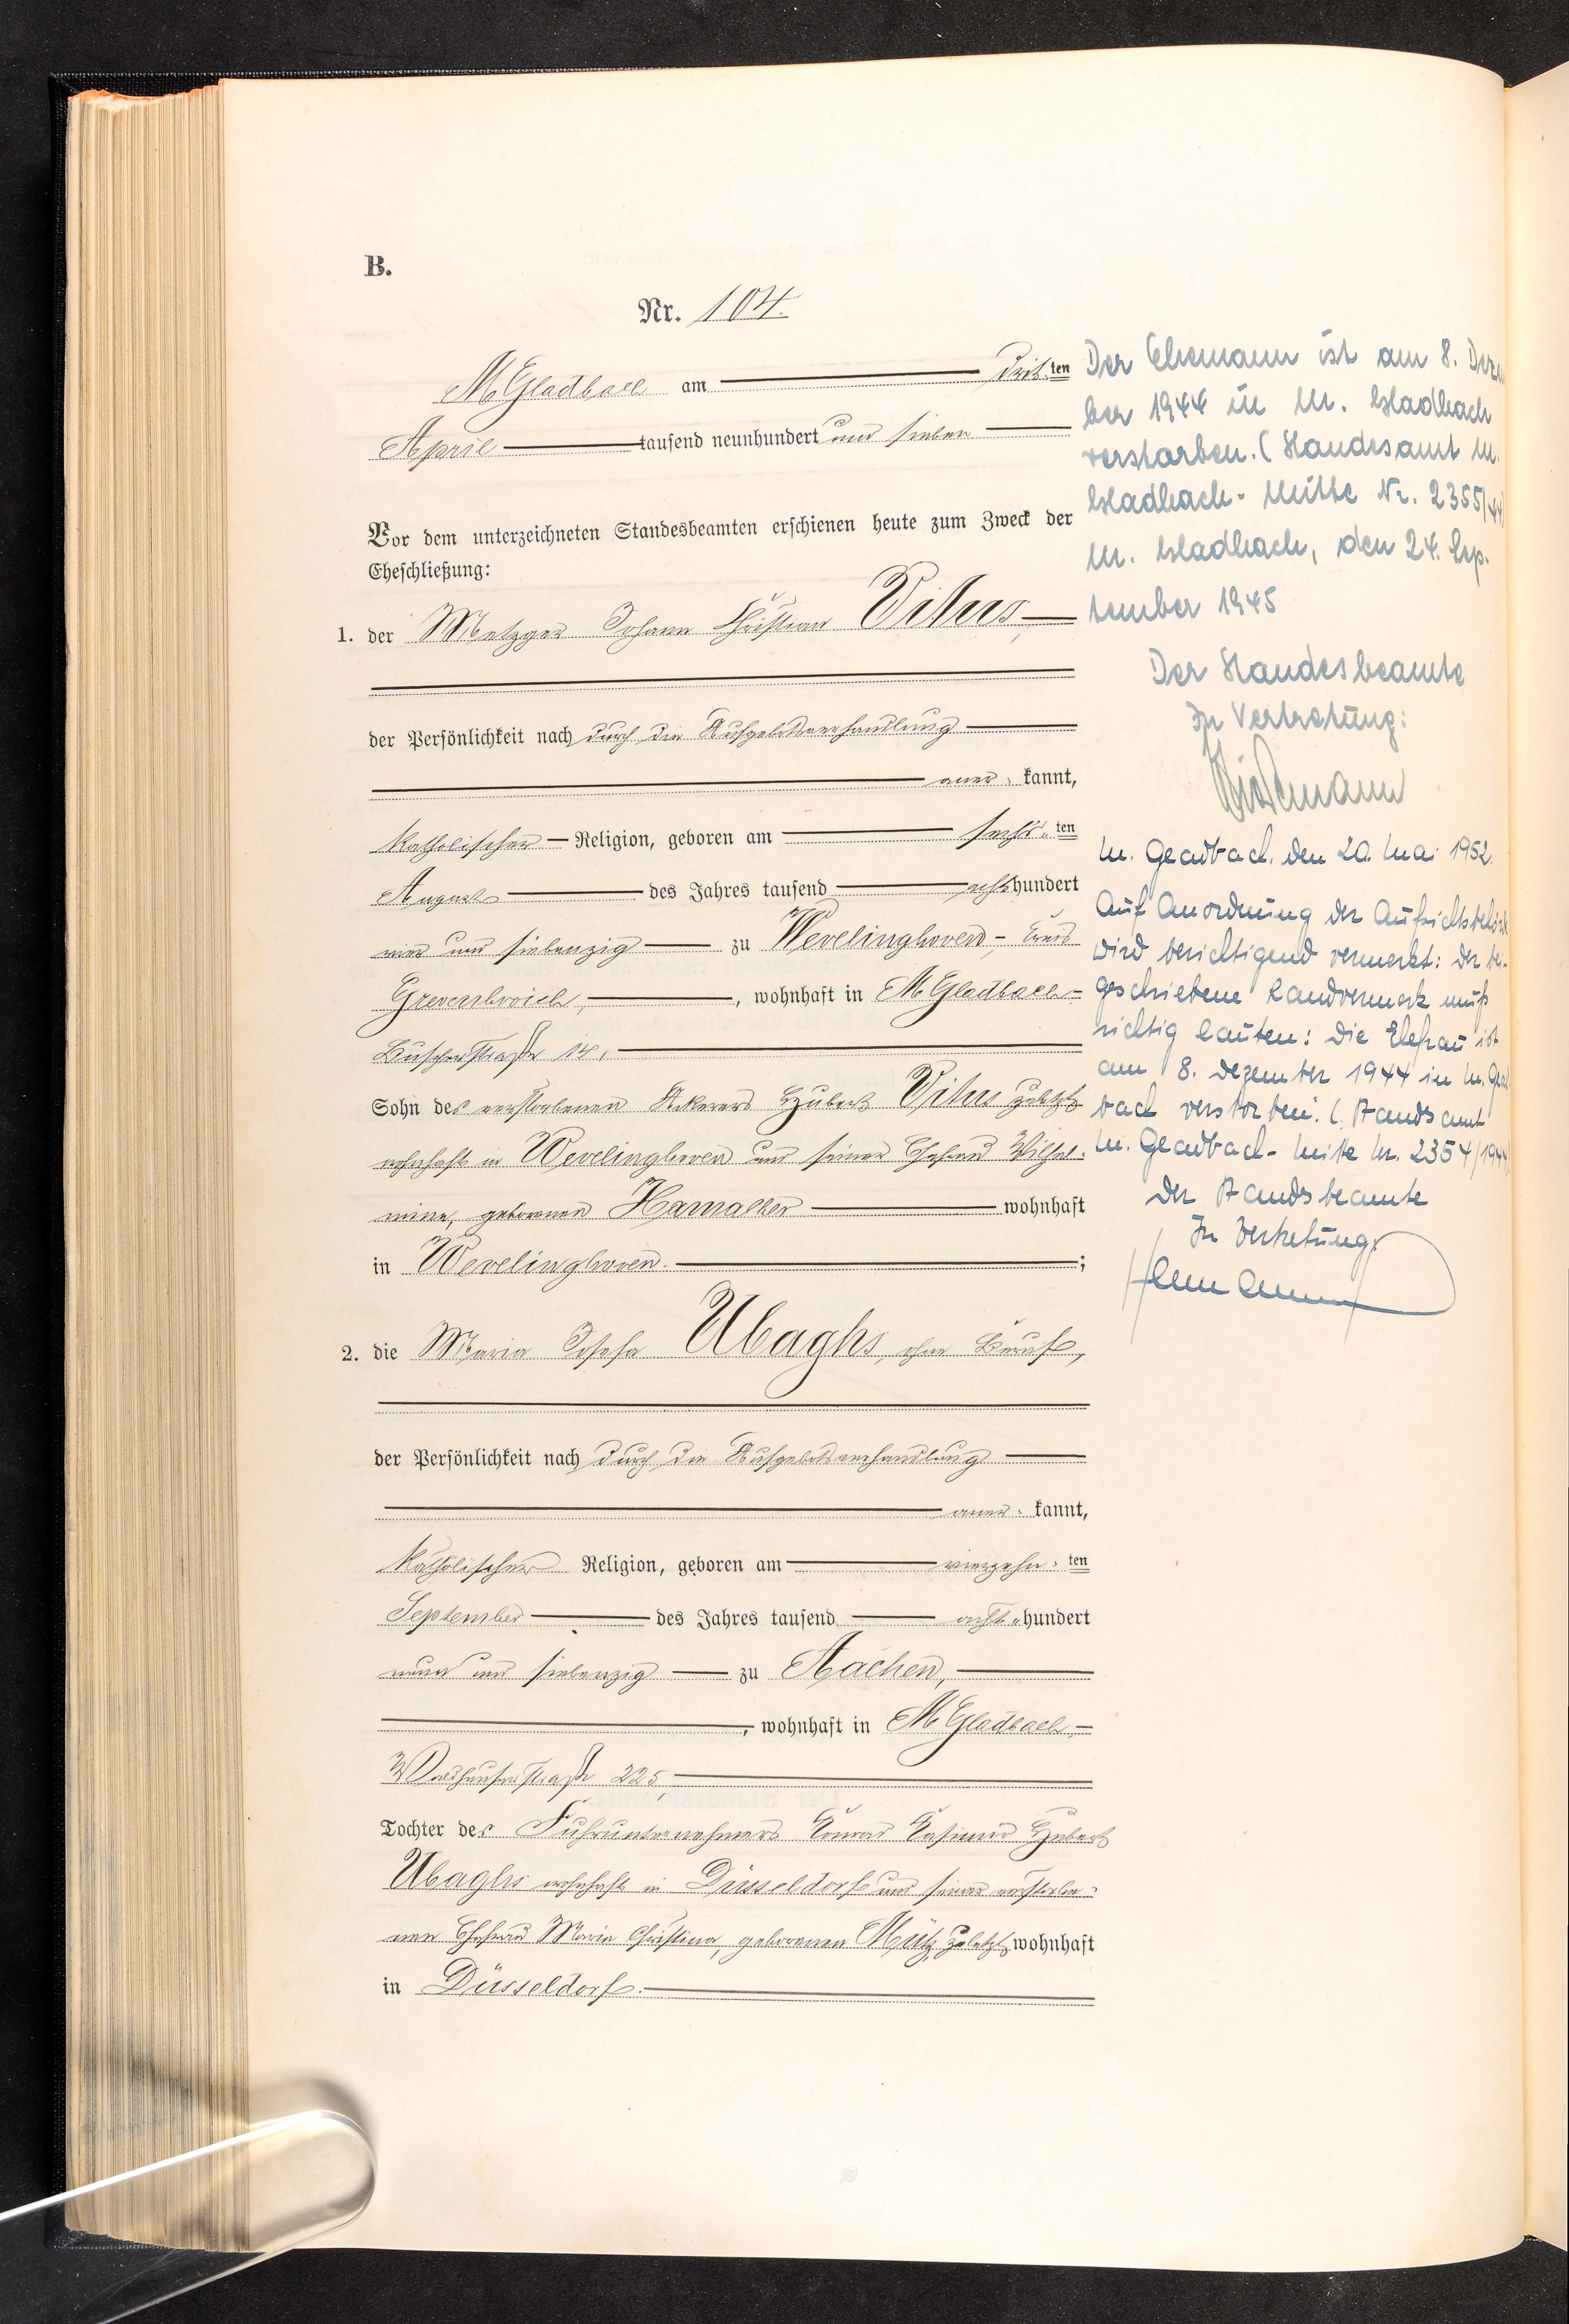 B.
Nr. 104.
M Gladbach am dritten
April tausend neunhundert und sieben
Vor dem unterzeichneten Standesbeamten erschienen heute zum Zweck der
Eheschließung:
1. der Metzger Johann Christian Vitus,
der Persönlichkeit nach durch die Aufgebotsverhandlung
aner-kannt,
katholischer Religion, geboren am sechsten
August des Jahres tausend achthundert
vier und siebenzig zu Wevelinghoven, Kreis
Grevenbroich, wohnhaft in M Gladbach-
straße 14,
Sohn des verstorbenen Ackerers Hubert Vitus zuletzt
wohnhaft in Wevelinghoven und seiner Ehefrau Wilhel-
mine, geborenen Hamacher wohnhaft
in Wevelinghoven. ;
2. die Maria Josefa Ubaghs, ohne Beruf,
der Persönlichkeit nach durch die Aufgebotsverhandlung
aner-kannt,
katholischer Religion, geboren am vierzehn-ten
September des Jahres tausend acht-hundert
neun und siebenzig zu Aachen,
, wohnhaft in M Gladbach,
Waldhauserstraße 225,
Tochter des Fuhrunternehmers Konrad Kasimir Hubert
Ubaghs wohnhaft in Düsseldorf und seiner verstorbe-
nen Ehefrau Maria Christina, geborenen Mütz zuletzt wohnhaft
in Düsseldorf.
Der Ehemann ist am 8. Dezem
ber 1944 in M. Gladbach
verstorben. (Standesamt M.
Gladbach-Mitte Nr. 2355/44)
M. Gladbach, den 24. Sep-
tember 1945
Der Standesbeamte
In Vertretung:
M. Gladbach, den 20. Mai 1952.
Auf Anordnung der Aufsichtsbehörde
wird berichtigend vermerkt: der bei-
geschriebene Randvermerk muß
richtig lauten: Die Ehefrau ist
am 8. Dezember 1944 in M. Glad
bach verstorben. (Standesamt
M. Gladbach-Mitte Nr. 2354/1944)
Der Standesbeamte
In Vertretung: